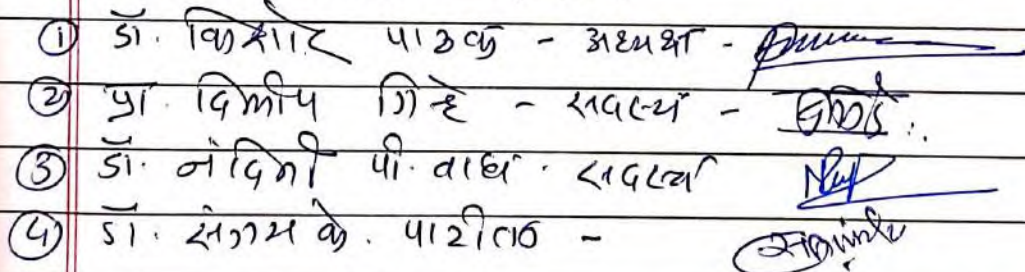 ① डॉ. किशोर पाठक - अध्यक्ष -
② प्रा. दिलीप गिऱ्हे - सदस्य -
③ डॉ. नंदिनी पी. वाघ. सदस्य
④ डॉ. संगम के. पाटील -